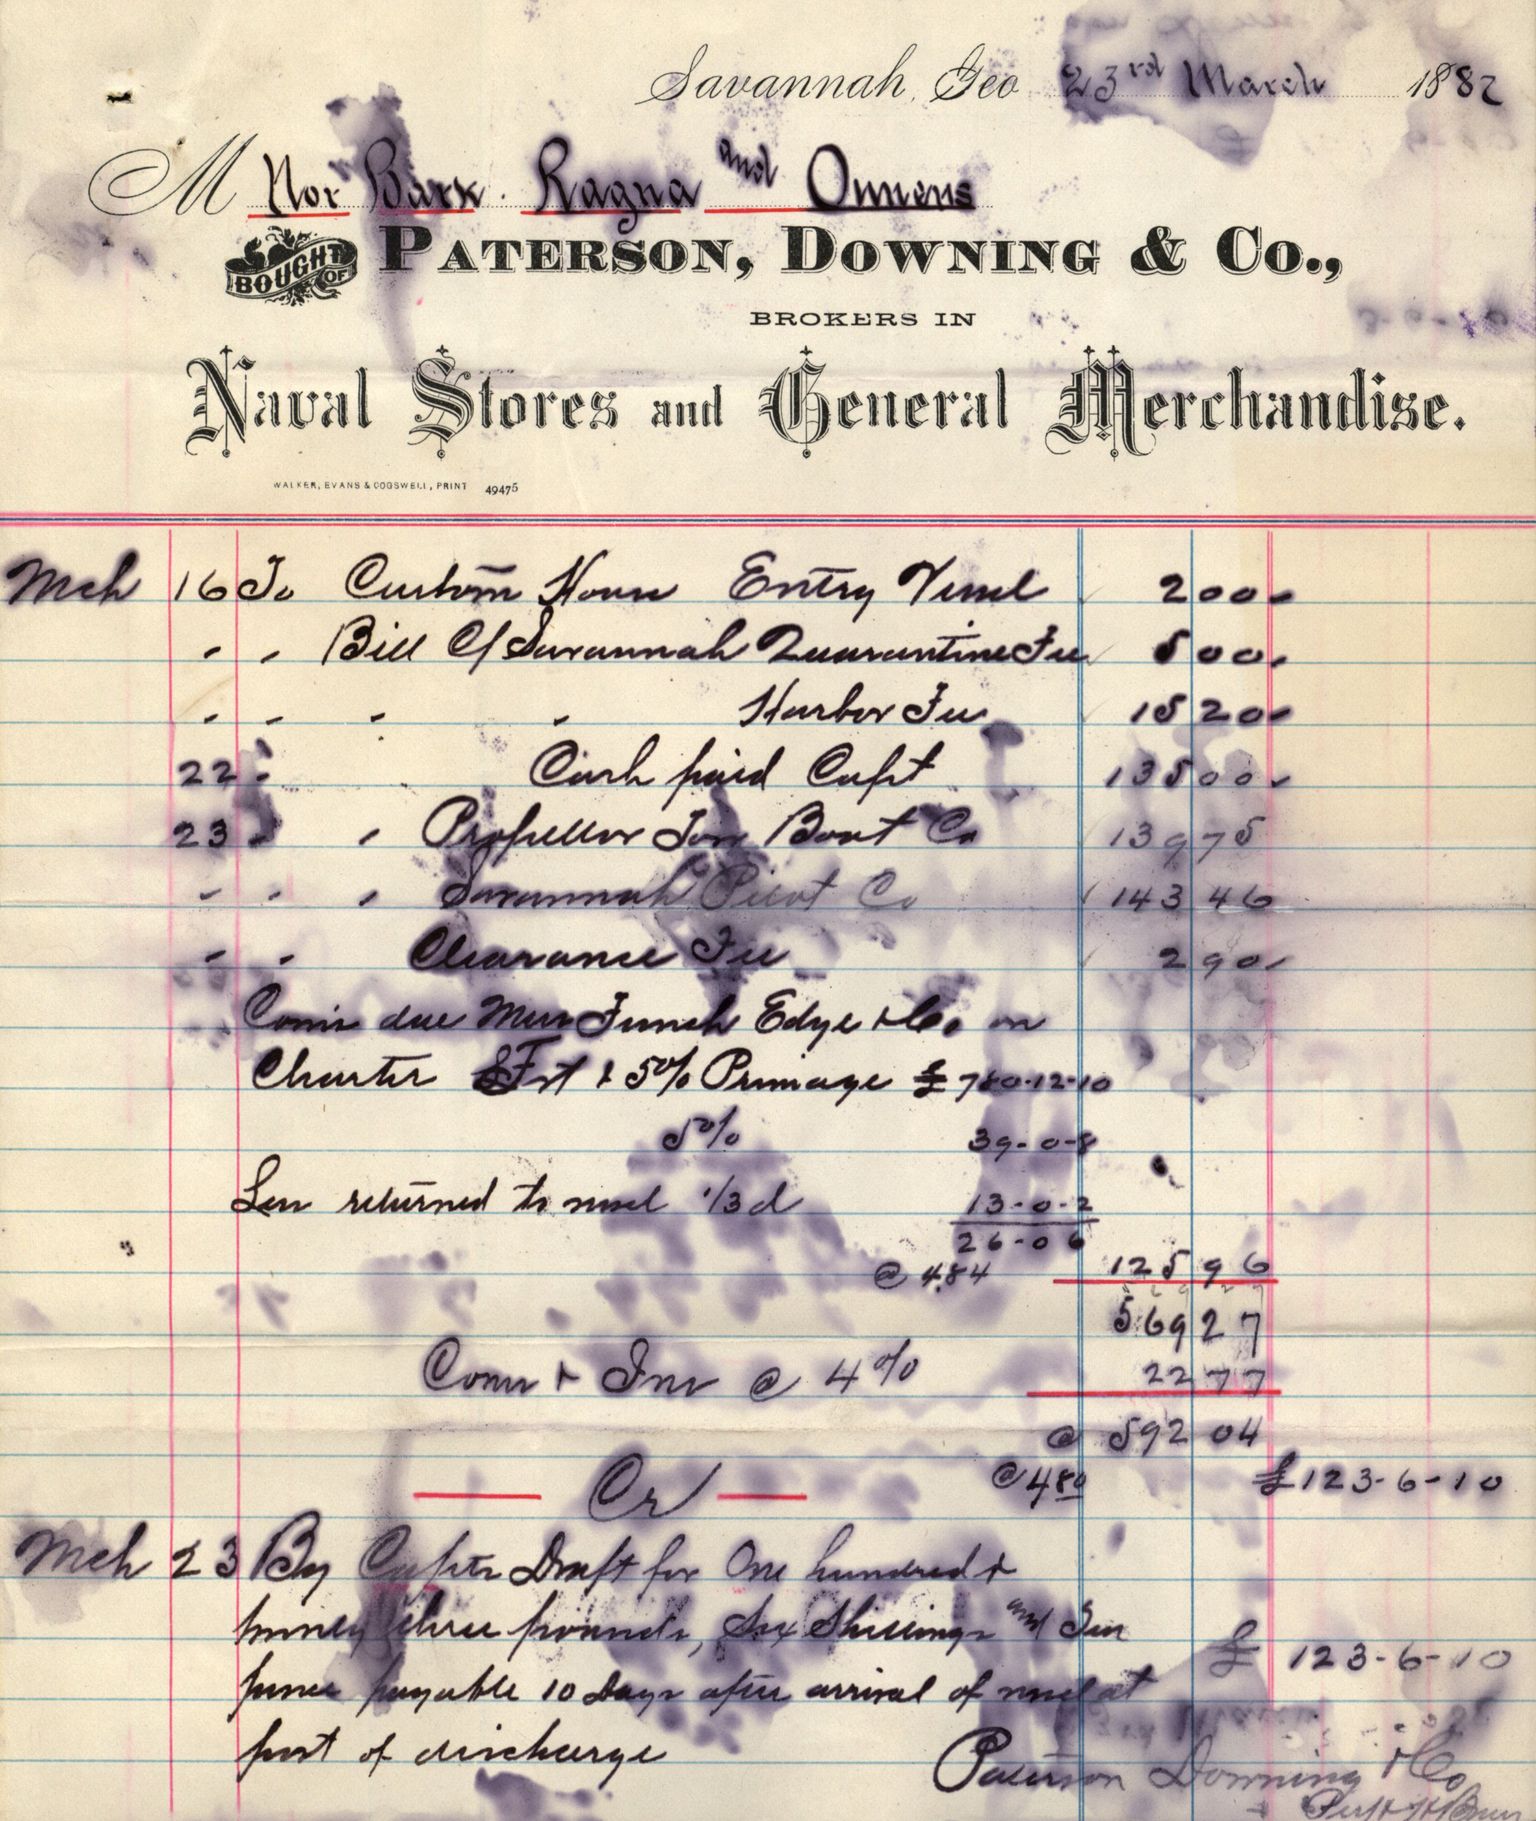 Savannah, Geo 23rd March 1882
M Nor Bark. Ragna and Owners
BOUGHT OF
PATERSON, DOWNING & Co.,
BROKERS IN
Naval Stores and General Merchandise.
WALKER, EVANS & COGSWELL, PRINT 49475
Mch 16 To Custom House Entry Vessel 2 00
" " Bill C/ Savannah Quarantine Fee 5 00
" " " " Harbor Fee 15 20
22 " Cash paid Capt 135 00
23 " " Propellor Tow Boat Co 139 75
" " " Savannah Pilot Co 143 46
" " Clearance Fee 2 90
Com's due Mess Funch Edye & Co. on
Charter Frt & 5% Primage £ 780-12-10
5% 39-0-8
Less returned to vessel 1/3d 13-0-2
26-0 6
@ 4.84 125 96
569 27
Coms & Ins @ 4% 22 77
@ 592 04
Cr @ 4 80 £123-6-10
Mch 23 By Capts Draft for One hundred &
twenty three pounds, Six Shillings and Ten
pence payable 10 Days after arrival of vessel at £ 123-6-10
port of discharge
Paterson Downing & Co